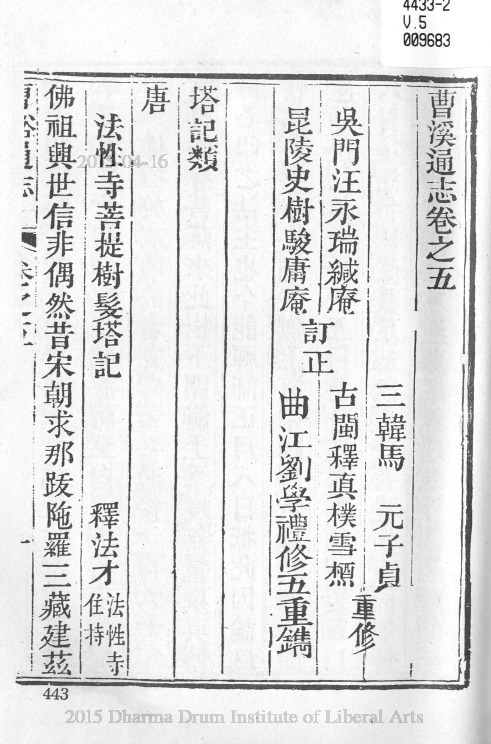 4433-2
V.5
009683
曹溪通志卷之五
三韓馬 元子貞
古閩釋真樸雪樵 重修
吳門汪永瑞緘庵
昆陵史樹駿庸庵 訂正
曲江劉學禮修五重鐫
塔記類
唐
法性寺菩提樹髮塔記 釋法才 法性寺住持
佛祖興世信非偶然昔宋朝求那跋陁羅三藏建茲
曹溪通志 卷之五 一
2015-04-16
443
2015 Dharma Drum Institute of Liberal Arts